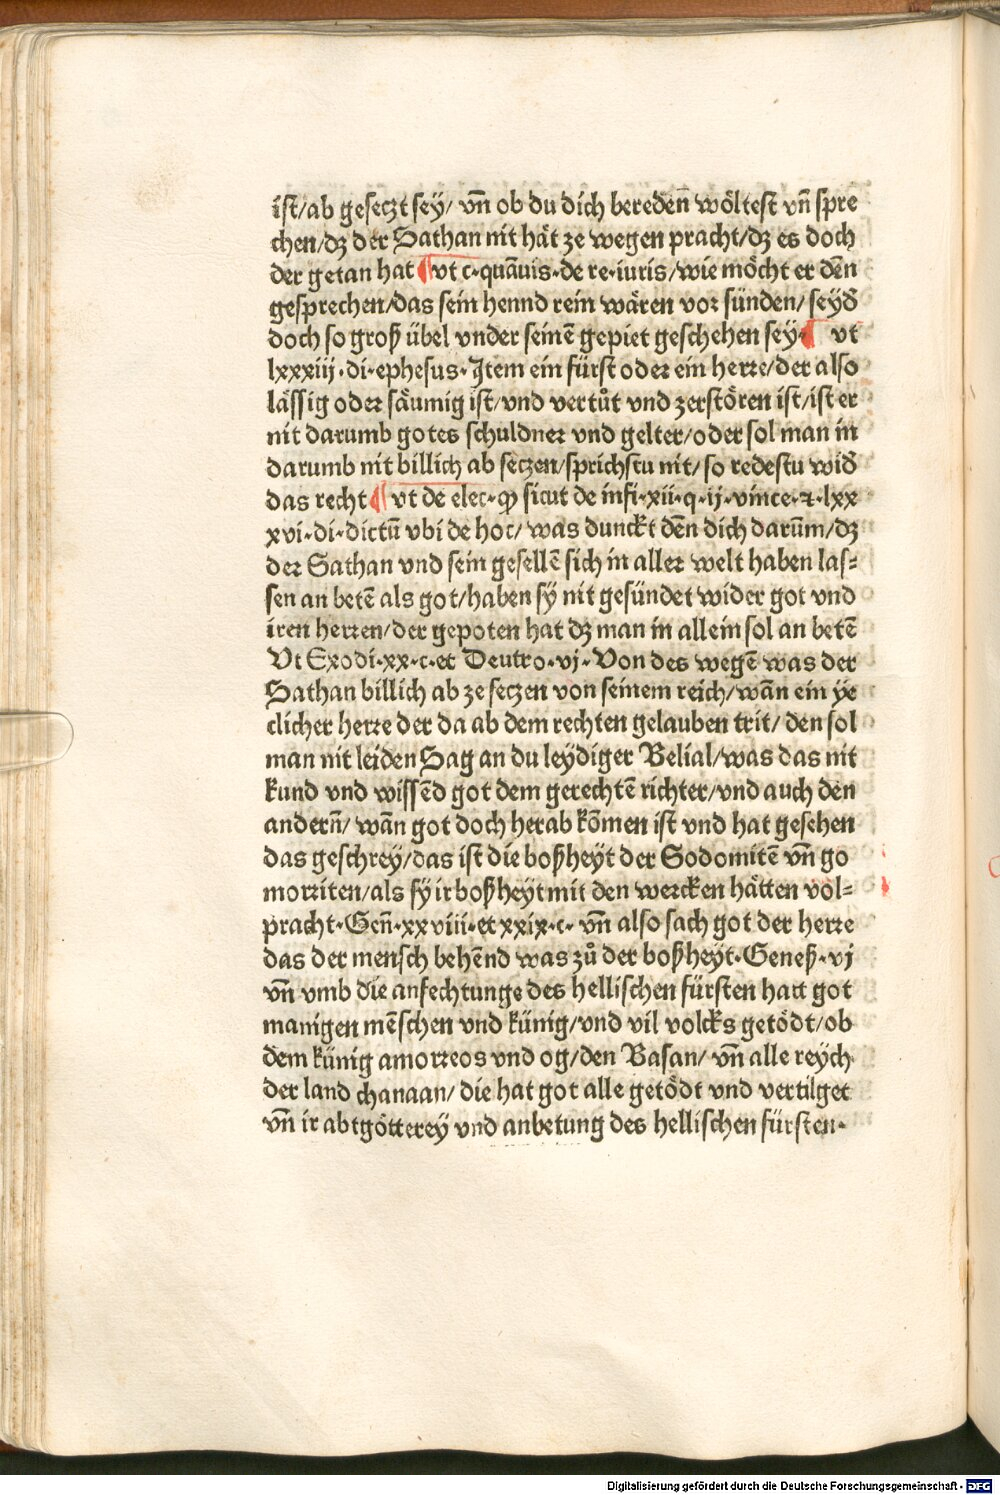 ist/ab geseczt sey/ vñ ob du dich beredeñ wöltest vñ spre
chen/dz der Sathan nit hät ze wegen pracht/dz es doch
der getan hat ¶vt c·quāuis·de re·iuris/wie möcht er dēn
gesprechen/das sein hennd rein wären vor sünden/seyd̕
doch so groß übel vnder seinē gepiet geschehen sey·¶ vt
lxxxiij·di·ephesus·Item ein fürst oder ein herre/der also
lässig oder säumig ist/vnd vertůt vnd zerstören ist/ist er
nit darumb gotes schuldner vnd gelter/oder sol man in
darumb nit billich ab seczen/sprichstu nit/so redestu wid̕
das recht ¶vt de elec·ꝙ sicut de infi·xii·q·ij·vince·⁊·lxx
xvi·di·dictū vbi de hoc/was dunckt dēn dich darūm/dz
der Sathan vnd sein gesellē sich in aller welt haben las⸗
sen an betē als got/haben sÿ nit gesündet wider got vnd
iren herren/der gepoten hat dz man in allein sol an betē
Vt Exodi·xx·c·et Deutro·vj·Von des wegē was der
Sathan billich ab ze seczen von seinem reich/wān ein ÿe
clicher herre der da ab dem rechten gelauben trit/den sol
man nit leiden Sag an du leÿdiger Belial/was das nit
kund vnd wissēd got dem gerechtē richter/vnd auch den
anderñ/wān got doch herab kōmen ist vnd hat gesehen
das geschrey/das ist die boßheÿt der Sodomitē vñ go
morriten/als sÿ ir boßheÿt mit den wercken hätten vol⸗
pracht·Geñ·xxviii·et xxix·c·vñ also sach got der herre
das der mensch behēnd was zů der boßheÿt·Geneß·vj
vñ vmb die anfechtunge des hellischen fürsten hatt got
manigen mēschen vnd künig/vnd vil volcks getödt/ob
dem künig amorreos vnd og/den Basan/vñ alle reÿch
der land chanaan/die hat got alle getödt vnd vertilget
vñ ir abtgötterey vnd anbetung des hellischen fürsten·
Digitalisierung gefördert durch die Deutsche Forschungsgemeinschaft - DFG